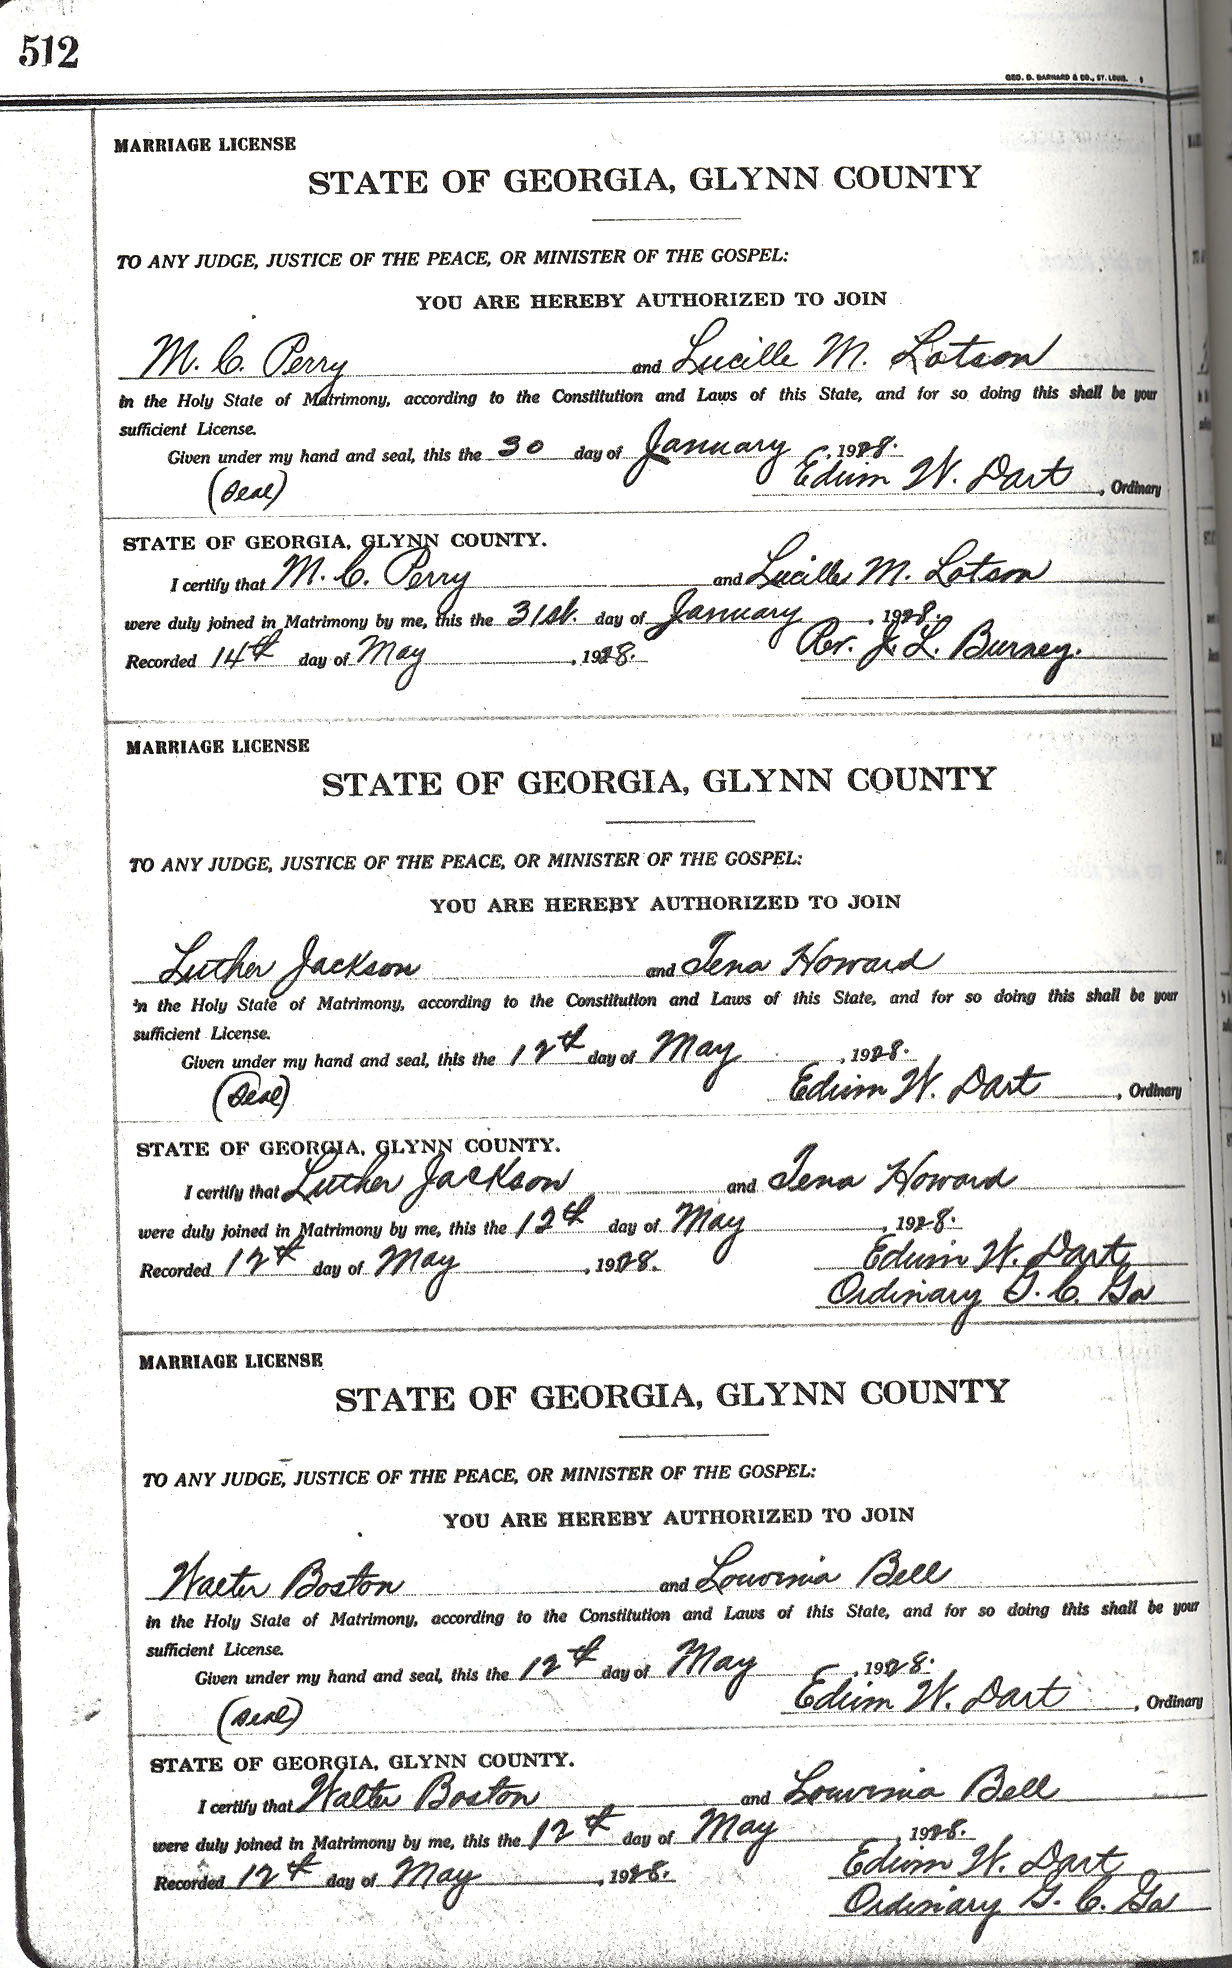 512
GEO. D. BARNARD & CO., ST. LOUIS.
MARRIAGE LICENSE
STATE OF GEORGIA, GLYNN COUNTY
TO ANY JUDGE, JUSTICE OF THE PEACE, OR MINISTER OF THE GOSPEL:
YOU ARE HEREBY AUTHORIZED TO JOIN
M. C. Perry and Lucille M. Lotson
in the Holy State of Matrimony, according to the Constitution and Laws of this State, and for so doing this shall be your
sufficient License.
Given under my hand and seal, this the 30 day of January, 1928.
(Seal) Edwin W. Dart, Ordinary
STATE OF GEORGIA, GLYNN COUNTY.
I certify that M. C. Perry and Lucille M. Lotson
were duly joined in Matrimony by me, this the 31st. day of January, 1928.
Recorded 14th day of May, 1928. Rev. J. L. Burney.
MARRIAGE LICENSE
STATE OF GEORGIA, GLYNN COUNTY
TO ANY JUDGE, JUSTICE OF THE PEACE, OR MINISTER OF THE GOSPEL:
YOU ARE HEREBY AUTHORIZED TO JOIN
Luther Jackson and Tena Howard
in the Holy State of Matrimony, according to the Constitution and Laws of this State, and for so doing this shall be your
sufficient License.
Given under my hand and seal, this the 12th day of May, 1928.
(Seal) Edwin W. Dart, Ordinary
STATE OF GEORGIA, GLYNN COUNTY.
I certify that Luther Jackson and Tena Howard
were duly joined in Matrimony by me, this the 12th day of May, 1928.
Recorded 12th day of May, 1928. Edwin W. Dart
Ordinary G. C. Ga
MARRIAGE LICENSE
STATE OF GEORGIA, GLYNN COUNTY
TO ANY JUDGE, JUSTICE OF THE PEACE, OR MINISTER OF THE GOSPEL:
YOU ARE HEREBY AUTHORIZED TO JOIN
Walter Boston and Louvinia Bell
in the Holy State of Matrimony, according to the Constitution and Laws of this State, and for so doing this shall be your
sufficient License.
Given under my hand and seal, this the 12th day of May, 1928.
(Seal) Edwin W. Dart, Ordinary
STATE OF GEORGIA, GLYNN COUNTY.
I certify that Walter Boston and Louvinia Bell
were duly joined in Matrimony by me, this the 12th day of May, 1928.
Recorded 12th day of May, 1928. Edwin W. Dart
Ordinary G. C. Ga